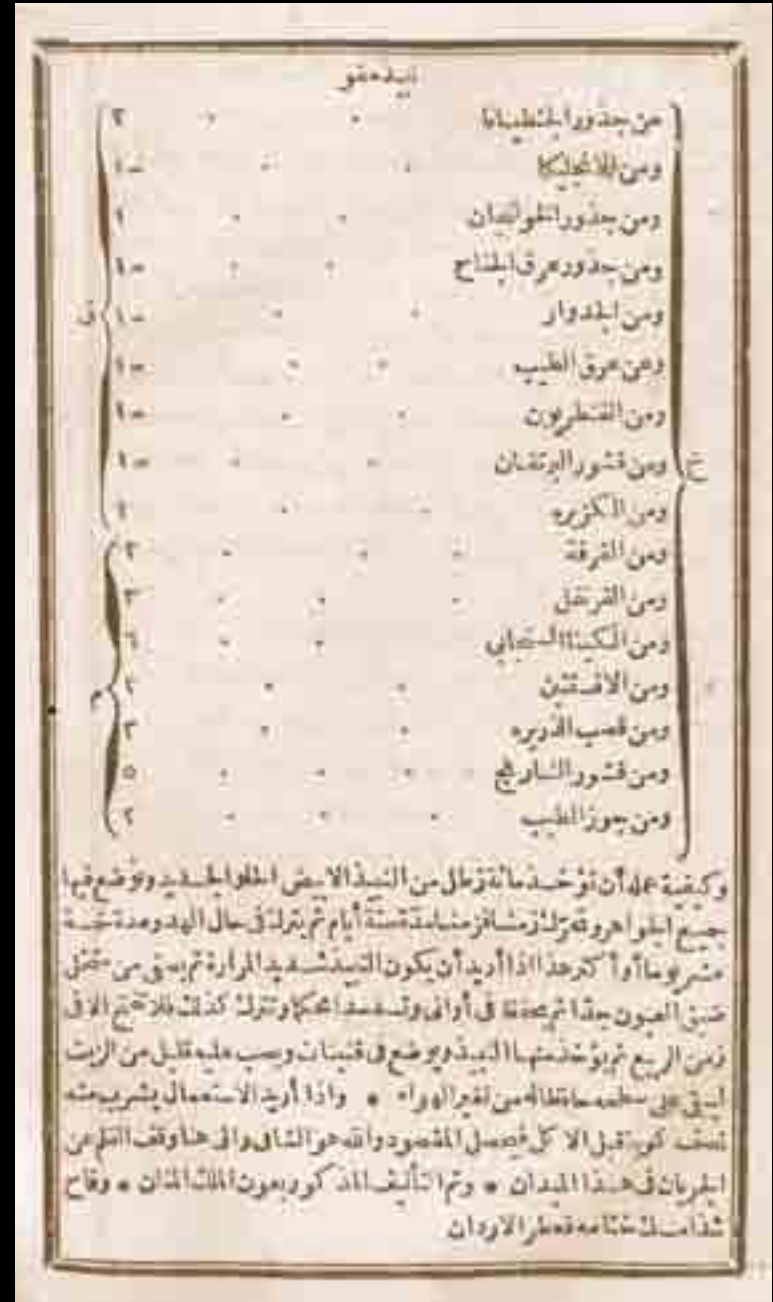 نبيذ مقو
من جذور الجنطيانا ٢
ومن الانجليكا ١٠
ومن جذور الخولنجان ١
ومن جذور عرق الجناح ١٠
ومن الجدوار ١٠ ق
ومن عرق الطيب ١٠
ومن القنطريون ١٠
خ ومن قشور البرتقان ١٠
ومن الكزبره
ومن القرفة ٣
ومن القرنفل ٣
ومن الكينا السنجابى ٦
ومن الافسنتين ٢ م
ومن قصب الذريره ٢
ومن قشور النارنج ٥
ومن جوز الطيب ٢
وكيفية عمله أن تؤخذ مائة رطل من النبيذ الابيض الحلو الجديد وتوضع فيها
جميع الجواهر وتحرك زمنا فزمنا مدة ستة أيام ثم يترك فى حال الهدو مدة خمسة
عشر يوما أو أكثر هذا اذا أريد أن يكون النبيذ شديد المرارة ثم يصفى من منخل
ضيق العيون جدا ثم يحفظ فى أوانى وتسد سدا محكما وتترك كذلك فلا تفتح الا فى
زمن الربيع ثم يؤخذ منها النبيذ ويوضع فى قنينات ويصب عليه قليل من الزيت
ليبقى على سطحه حافظا له من تغير الهواء * واذا أريد الاستعمال يشرب منه
نصف كوبة قبل الاكل فيحصل المقصود والله هو الشافى والى هنا وقف القلم عن
الجريان فى هذا الميدان * وتم التأليف المذكور بعون الملك المنان * وفاح
شذا مسك ختامه فعطر الاردان